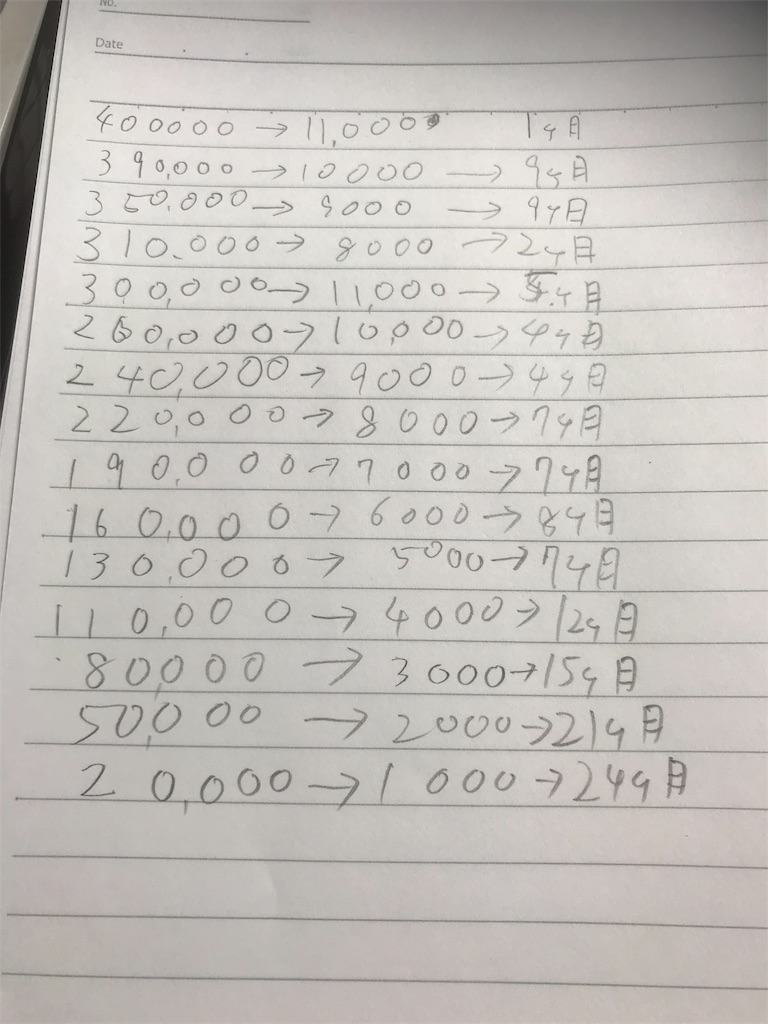 No.
Date
400000 → 11,000 1ヶ月
390,000 → 10000 → 9ヶ月
350,000 → 9000 → 9ヶ月
310,000 → 8000 → 2ヶ月
300,000 → 11,000 → ヶ月
260,000 → 10,000 → 4ヶ月
240,000 → 9000 → 4ヶ月
220,000 → 8000 → 7ヶ月
190,000 → 7000 → 7ヶ月
160,000 → 6000 → 8ヶ月
130,000 → 5000 → 7ヶ月
110,000 → 4000 → 12ヶ月
80,000 → 3000 → 15ヶ月
50,000 → 2000 → 21ヶ月
20,000 → 1000 → 24ヶ月